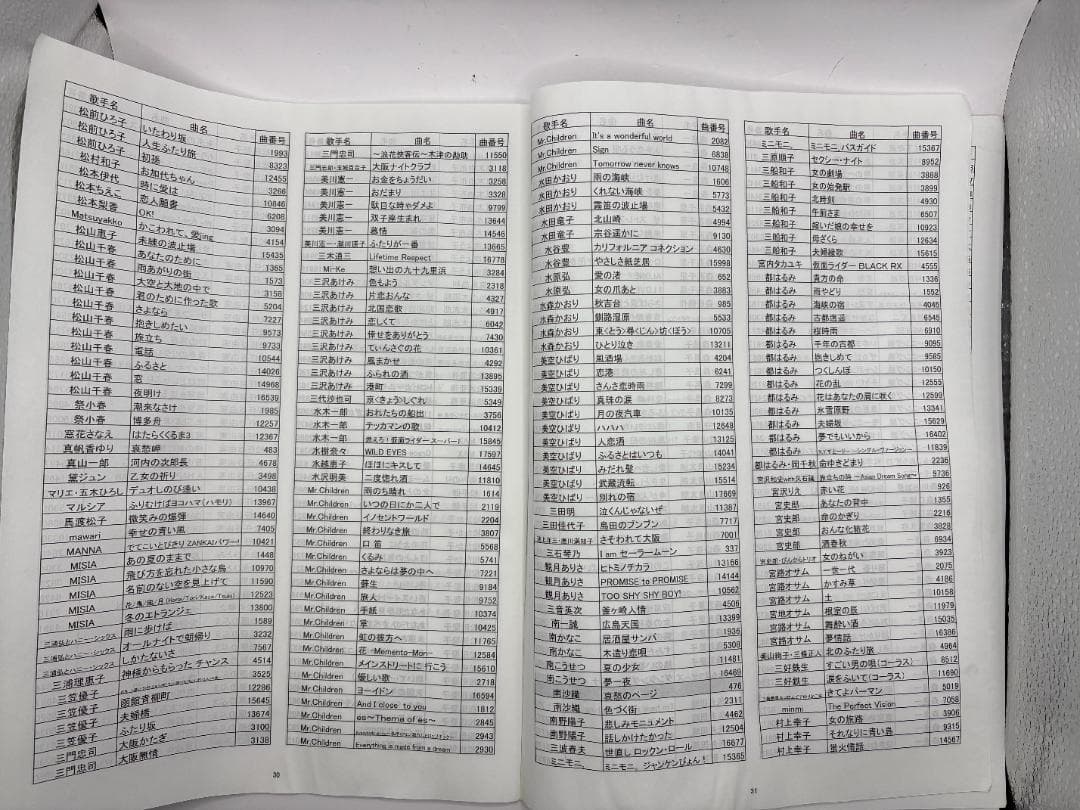 歌手名 曲名 曲番号
松前ひろ子 いたわり坂 1993
松前ひろ子 人生ふたり旅 8323
松前ひろ子 初孫 12455
松村和子 お加代ちゃん 3266
松本伊代 時に愛は 10846
松本ちえこ 恋人願書 6208
松本梨香 OK! 3094
Matsuyakko かこわれて、愛jing 4154
松山恵子 未練の波止場 15435
松山千春 あなたのために 1365
松山千春 雨あがりの街 1573
松山千春 大空と大地の中で 3158
松山千春 君のために作った歌 5204
松山千春 さよなら 7227
松山千春 抱きしめたい 9573
松山千春 旅立ち 9733
松山千春 電話 10544
松山千春 ふるさと 14026
松山千春 窓 14968
松山千春 夜明け 16539
祭小春 潮来なさけ 1985
祭小春 博多舟 12257
窓花さなえ はたらくくるま3 12367
真帆香ゆり 哀愁岬 483
真山一郎 河内の次郎長 4678
黛ジュン 乙女の祈り 3498
マリエ・五木ひろし デュオしのび逢い 10438
マルシア ふりむけばヨコハマ(ハモリ) 13967
馬渡松子 微笑みの爆弾 14640
mawari 幸せの青い風 7405
MANNA でてこいとびきり ZANKAIパワー! 10421
MISIA あの夏のままで 1448
MISIA 飛び方を忘れた小さな鳥 10970
MISIA 名前のない空を見上げて 11590
MISIA 花/鳥/風/月 12523
MISIA 冬のエトランジェ 13800
三浦弘とハニー・シックス 雨に歩けば 1589
三浦弘とハニー・シックス オールナイトで朝帰り 3232
三浦弘とハニー・シックス しかたないさ 7567
三浦理恵子 神様からもらった チャンス 4514
三笠優子 函館青柳町 3525
三笠優子 夫婦橋 12286
三笠優子 ふたり坂 15645
三門忠司 大阪かたぎ 13674
三門忠司 大阪無情 3100
3138
30
歌手名 曲名 曲番号
三門忠司 〜浪花侠客伝〜木津の勘助 11550
大阪ナイトクラブ 3118
美川憲一 お金をちょうだい 3256
美川憲一 おだまり 3328
美川憲一 駄目な時ゃダメよ 9799
美川憲一 双子座生まれ 13644
美川憲一 慕情 14546
美川憲一・瀬川瑛子 ふたりが一番 13665
三木道三 Lifetime Respect 16778
Mi-Ke 想い出の九十九里浜 3284
三沢あけみ 色もよう 2318
三沢あけみ 片恋おんな 4327
三沢あけみ 北国恋歌 4917
三沢あけみ 恋しくて 6042
三沢あけみ 倖せをありがとう 7430
三沢あけみ てぃんさぐの花 10361
三沢あけみ 風まかせ 4292
三沢あけみ ふられの酒 13895
三沢あけみ 港町 15339
三代沙也可 京(きょう)しぐれ 5349
水木一郎 おれたちの船出 3756
水木一郎 テッカマンの歌 10412
水木一郎 燃えろ!仮面ライダースーパー1 15845
水樹奈々 WILD EYES 17597
水越恵子 ほほにキスして 14645
水沢明美 二度惚れ酒 11810
Mr.Children 雨のち晴れ 1614
Mr.Children いつの日にか二人で 2119
Mr.Children イノセントワールド 2204
Mr.Children 終わりなき旅 3807
Mr.Children 口笛 5568
Mr.Children くるみ 5741
Mr.Children さよならは夢の中へ 7221
Mr.Children 蘇生 9184
Mr.Children 旅人 9752
Mr.Children 手紙 10374
Mr.Children 車 10425
Mr.Children 虹の彼方へ 11765
Mr.Children 花 -Memento-Mori- 12584
Mr.Children メインストリートに行こう 15610
Mr.Children 優しい歌 2718
Mr.Children ヨーイドン 16594
Mr.Children And I close to you 1812
Mr.Children es〜Theme of es〜 2845
Mr.Children 2943
Mr.Children Everything is made from a dream 2930
歌手名 曲名 曲番号
Mr.Children It's a wonderful world 2082
Mr.Children Sign 6838
Mr.Children Tomorrow never knows 10748
水田かおり 雨の海峡 1606
水田かおり くれない海峡 5773
水田かおり 霧笛の波止場 5432
水田竜子 北山崎 4994
水田竜子 宗谷遥かに 9130
水谷豊 カリフォルニア コネクション 4630
水谷豊 やさしさ紙芝居 15998
水原弘 愛の渚 652
水原弘 女の爪あと 3883
水森かおり 秋吉台 985
水森かおり 釧路湿原 5533
水森かおり 東<とう>尋<じん>坊<ぼう> 10705
水森かおり ひとり泣き 13211
美空ひばり 風酒場 4204
美空ひばり 恋港 6241
美空ひばり さんさ恋時雨 7299
美空ひばり 真珠の涙 8273
美空ひばり 月の夜汽車 10135
美空ひばり ハハハ 12648
美空ひばり 人恋酒 13125
美空ひばり ふるさとはいつも 14041
美空ひばり みだれ髪 15234
美空ひばり 武蔵流転 15514
美空ひばり 別れの宿 17669
三田明 泣くんじゃないぜ 11387
三田佳代子 島田のブンブン 7717
さそわれて大阪 7001
三石琴乃 I am セーラームーン 337
観月ありさ ヒトミノチカラ 13166
観月ありさ PROMISE to PROMISE 14144
観月ありさ TOO SHY SHY BOY! 10562
三音英次 釜ヶ崎人情 4509
南一誠 広島天国 13399
南かなこ 居酒屋サンバ 1936
南かなこ 木遣り恋唄 5309
南こうせつ 夏の少女 11481
南こうせつ 夢一夜 16469
南沙織 哀愁のページ 476
南沙織 色づく街 2311
南野陽子 悲しみモニュメント 4462
南野陽子 話しかけたかった 12504
三波春夫 世直し ロックン・ロール 16677
ミニモニ。 ミニモニ。ジャンケンぴょん! 15365
31
歌手名 曲名 曲番号
ミニモニ。 ミニモニ。バスガイド 15367
三原順子 セクシー・ナイト 8952
三船和子 女の劇場 3868
三船和子 女の始発駅 3899
三船和子 北時刻 4930
三船和子 午前さま 6507
三船和子 脱いだ娘の幸せを 10923
三船和子 母ざくら 12634
三船和子 夫婦絵歌 15615
宮内タカユキ 仮面ライダー BLACK RX 4555
都はるみ 貴方の命 1336
都はるみ 雨やどり 1552
都はるみ 海峡の宿 4046
都はるみ 古都逍遥 6545
都はるみ 桜時雨 6910
都はるみ 千年の古都 9095
都はるみ 抱きしめて 9585
都はるみ つくしんぼ 10150
都はるみ 花の乱 12555
都はるみ 花はあなたの肩に咲く 12599
都はるみ 氷雪原野 13341
都はるみ 夫婦坂 15629
都はるみ 夢でもいいから 16402
都はるみ 11839
都はるみ・岡千秋 命ゆきどまり 2236
旅立ちの時 〜Asian Dream Song〜 9736
宮沢りえ 赤い花 926
宮史郎 あなたの背中 1355
宮史郎 命のかぎり 2216
宮史郎 おんな化粧花 3828
宮史郎 酒春秋 6934
宮史郎・ぴんからトリオ 女のねがい 3923
宮路オサム 一世一代 2075
宮路オサム かすみ草 4186
宮路オサム 土 10158
宮地オサム 根室の長 11979
宮路オサム 舞酔い酒 15035
宮路オサム 夢情話 16386
北のふたり旅 4964
三好鉄生 すごい男の唄(コーラス) 8512
三好鉄生 涙をふいて(コーラス) 11690
きてよパーマン 5019
minmi The Perfect Vision 7058
村上幸子 女の旅路 3906
村上幸子 それなりに青い鳥 9315
村上幸子 蛍火情話 14567